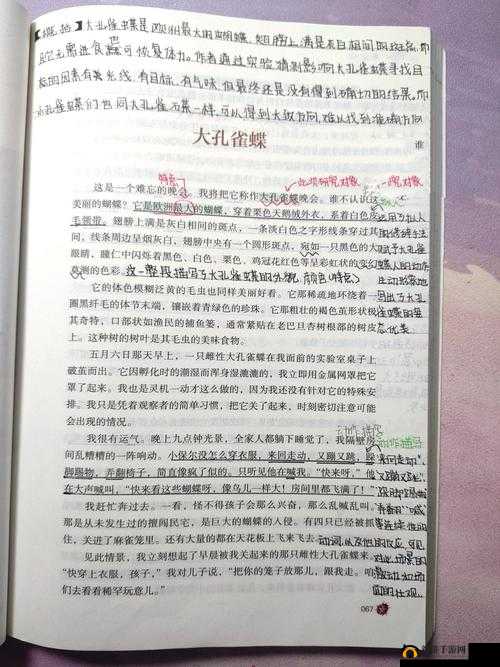 【概括】大孔雀蝶是欧洲最大的蝴蝶,翅膀上满是灰白相间的斑点,而
且它无需进食也可恢复体力。作者通过实验猜测影响大孔雀蝶寻找目
标的因素有光线、有目标、有气味,但最终还是没有得到确切的结果。而
小孔雀蝶们也同大孔雀蝶一样,可以得到大致方向,难以找到准确方向
大孔雀蝶
特点
此项研究对象
这是一个难忘的晚会。我将把它称作大孔雀蝶晚会。谁不认识这
美丽的蝴蝶?它是欧洲最大的蝴蝶,穿着栗色天鹅绒外衣,系着白色皮
毛领带。翅膀上满是灰白相间的斑点,一条淡白色之字形线条穿过其
间,线条周边呈烟灰白,翅膀中央有一个圆形斑点,宛如一只黑色的大
眼睛,瞳仁中闪烁着黑色、白色、栗色、鸡冠花红色等呈彩虹状的变幻
莫测的色彩。这一整段描写了大孔雀蝶的外貌,颜色(特点)
它的体色模糊泛黄的毛虫也同样美丽好看。它那稀疏地环绕着一
圈黑纤毛的体节末端,镶嵌着青绿色的珍珠。它那粗壮的褐色茧形状极
其奇特,口部状如渔民的捕鱼篓,通常紧贴在老巴旦杏树根部的树皮
上。这种树的树叶是其毛虫的美味食物。
五月六日那天早上,一只雌性大孔雀蝶在我面前的实验室桌子上
破茧而出。它因孵化时的潮湿而浑身湿漉漉的,我立即用金属网罩把它
罩了起来。我也是灵机一动才这么做的,因为我还没有针对它的特殊安
排。我只是凭着观察者的简单习惯,把它关了起来,时刻密切注意可能
会出现的情况。
动作描写
我很有运气。晚上九点钟光景,全家人都躺下睡觉了,我隔壁房
间乱糟糟的一阵响动。小保尔没怎么穿衣服,来回走动,又蹦又跳,跺
脚踢物,弄翻椅子,简直像疯了似的。只听见他在喊我。“快来呀,”他
在大声喊叫,“快来看这些蝴蝶呀,像鸟儿一样大!房间里都飞满了!”
我赶忙奔过去。一看,怪不得孩子会那么兴奋,那么乱喊乱叫。
那是从未发生过的擅闯民宅,是巨大的蝴蝶的入侵。有四只已经被抓
住,关进了麻雀笼里。还有大量的都在天花板上飞来飞去。
见此情景,我立刻想起了早晨被我关起来的那只雌性大孔雀蝶来。
“快穿上衣服,孩子,”我对儿子说,“把你的笼子放那儿,跟我走。咱
们去看看稀罕玩意儿。”
067